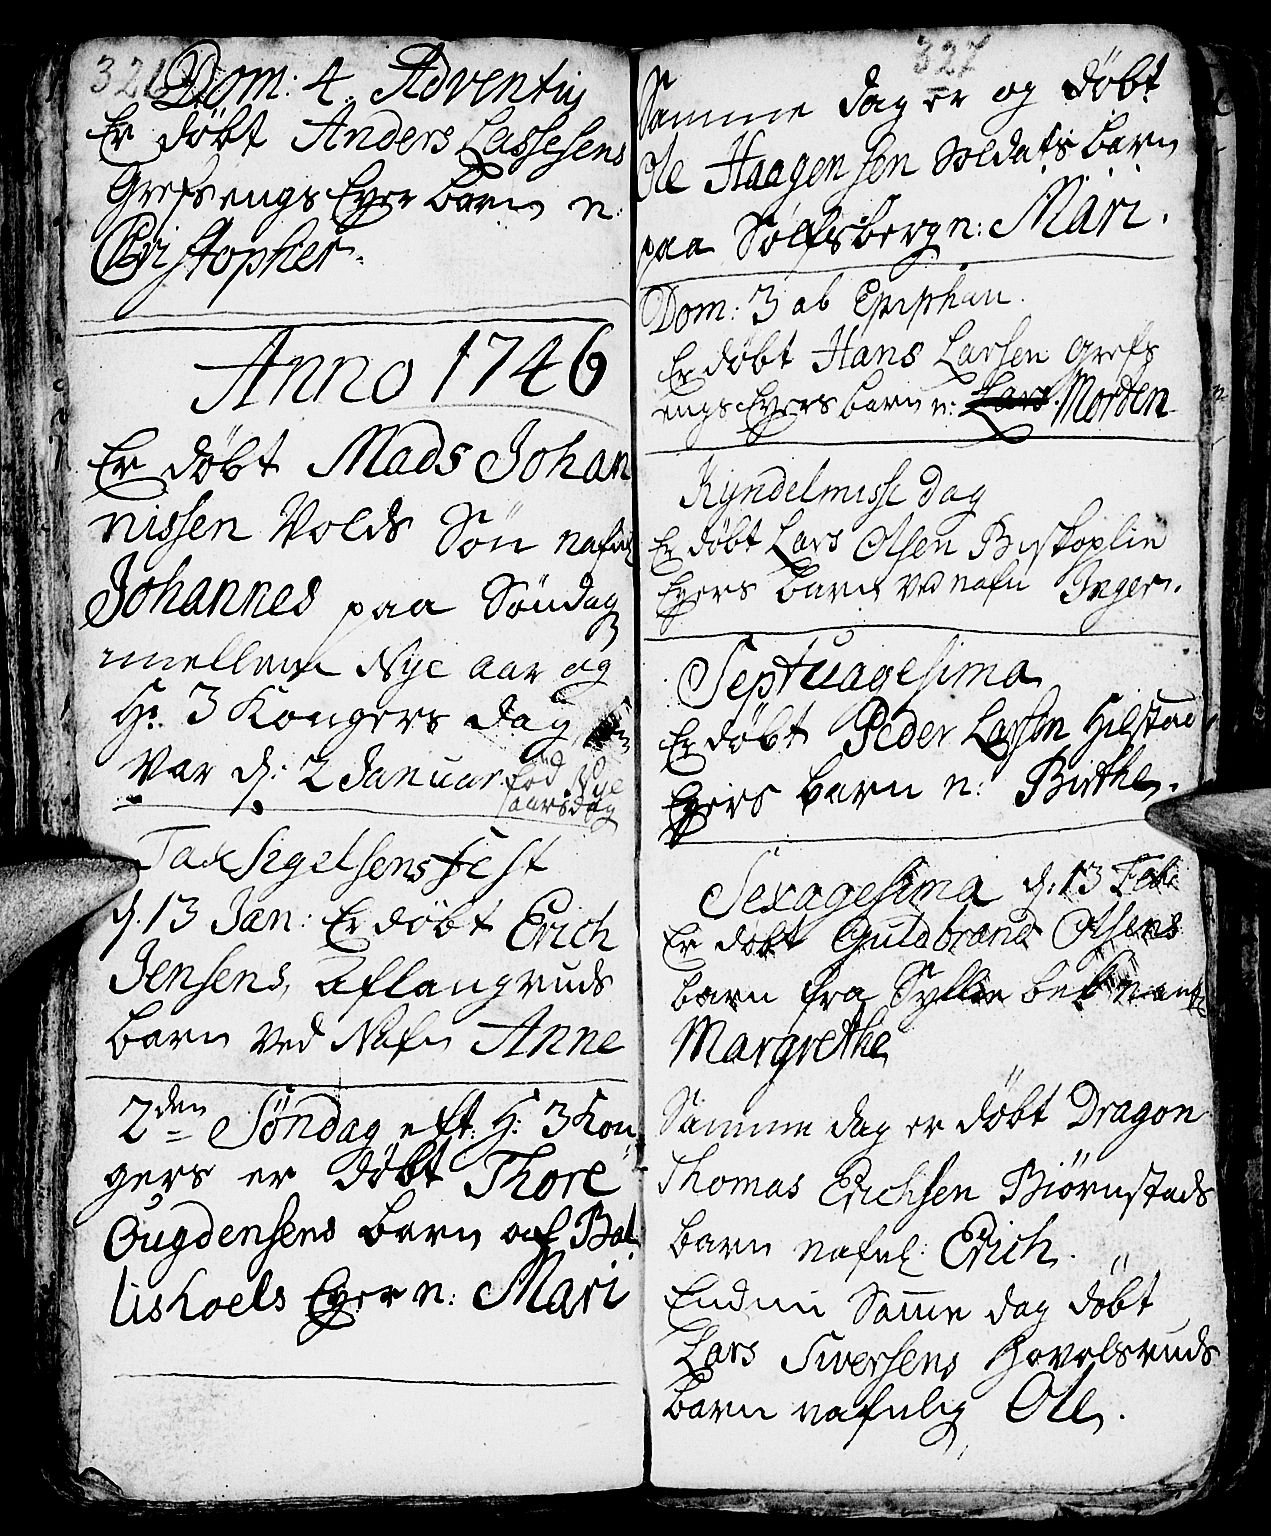 326
Dom: 4. Adventus
Er døbt Anders Lassesens
Grefsengs Eyer barn n:
Christopher.
Anno 1746
Er døbt Mads Johan
nissen Volds Søn nafnl
Johannes paa Søndag
imellem Nye aar og
H: 3 Kongers dag
var d: 2 Januar. fød Nye
aarsdag
Tacksigelsens fest
d. 13 Jan: Er døbt Erich
Jensens, Aflangruds
barn ved Nafn Anne
2den Søndag eft: H: 3 Kon
gers er døbt Thore
Gugdensens barn af Bal
lishoels Eyer n: Mari
327
Samme dag er og døbt
Ole Haagensen Soldats barn
paa Sølfsberg n: Mari.
Dom: 3 ab Epiphan.
Er døbt Hans Larsen Grefs
engs Eyers barn n: Lars. Morden
Kyndelmisse dag
Er døbt Lars Olsen Biskoplie
Eyers barn ved nafn Inger.
Septuagesima
Er døbt Peder Larsen Hilstad
Eyers barn n: Birthe.
Sexagesima d. 13 Feb:
Er døbt Guldbrand Olsens
barn fra Sylline
Margrethe
Samme dag er døbt Dragon
Thomas Erichsen Biørnstads
barn nafnl: Erich.
Endnu Samme dag døbt
Lars Siversens Hovelsruds
barn nafnlig Ole.